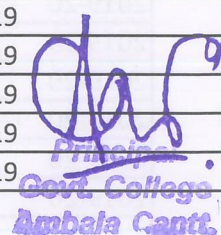 .9
.9
.9
.9
.9
Principal
Govt. College
Ambala Cantt.